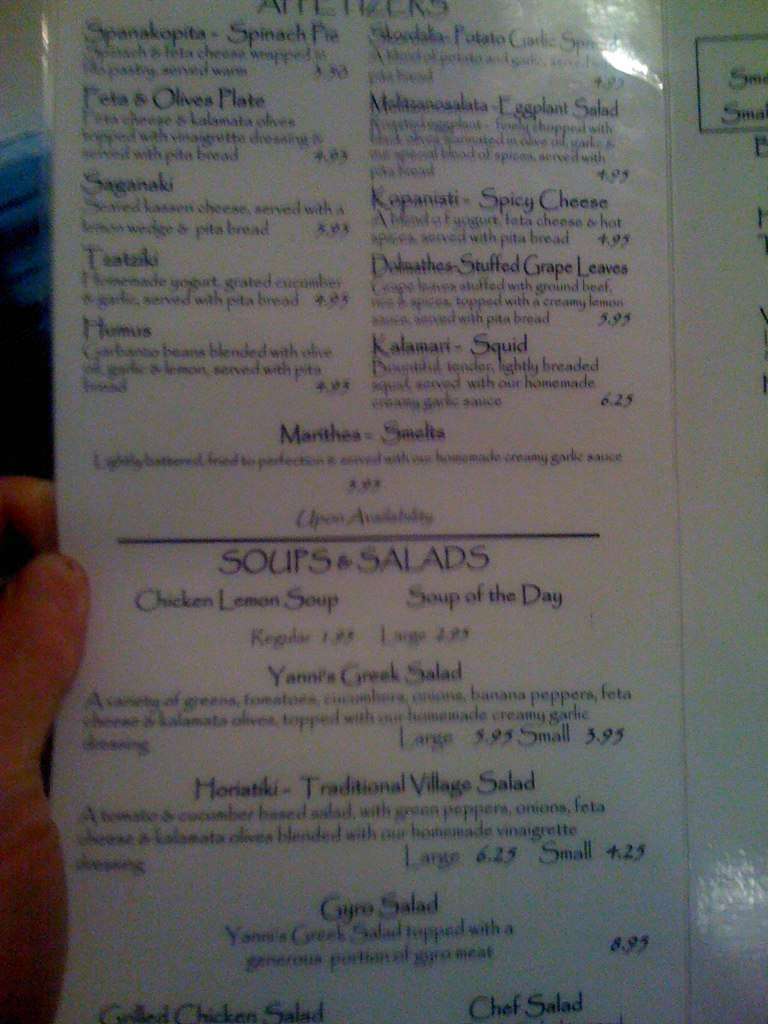 APPETIZERS
Spanakopita - Spinach Pie
Spinach & feta cheese wrapped in
filo pastry, served warm
Feta & Olives Plate
Feta cheese & kalamata olives
topped with vinaigrette dressing &
served with pita bread 4.95
Saganaki
Seared kasseri cheese, served with a
lemon wedge & pita bread 5.95
Tzatziki
Homemade yogurt, grated cucumber
& garlic, served with pita bread 4.95
Humus
Garbanzo beans blended with olive
oil, garlic & lemon, served with pita
bread 4.95
Skordalia - Potato Garlic Spread
A blend of potato and garlic, served
pita bread 4.95
Melitzanosalata - Eggplant Salad
Roasted eggplant - finely chopped with
olives marinated in olive oil, garlic &
our special blend of spices, served with
pita bread 4.95
Kopanisti - Spicy Cheese
A blend of yogurt, feta cheese & hot
spices, served with pita bread 4.95
Dolmathes - Stuffed Grape Leaves
Grape leaves stuffed with ground beef,
rice & spices, topped with a creamy lemon
sauce, served with pita bread 5.95
Kalamari - Squid
Bountiful, tender, lightly breaded
squid, served with our homemade
creamy garlic sauce 6.25
Marithes - Smelts
Lightly battered, fried to perfection & served with our homemade creamy garlic sauce
5.95
Upon Availability
SOUPS & SALADS
Chicken Lemon Soup Soup of the Day
Regular 1.95 Large 2.95
Yanni's Greek Salad
A variety of greens, tomatoes, cucumbers, onions, banana peppers, feta
cheese & kalamata olives, topped with our homemade creamy garlic
dressing Large 5.95 Small 3.95
Horiatiki - Traditional Village Salad
A tomato & cucumber based salad, with green peppers, onions, feta
cheese & kalamata olives blended with our homemade vinaigrette
dressing Large 6.25 Small 4.25
Gyro Salad
Yanni's Greek Salad topped with a
generous portion of gyro meat 8.95
Grilled Chicken Salad Chef Salad